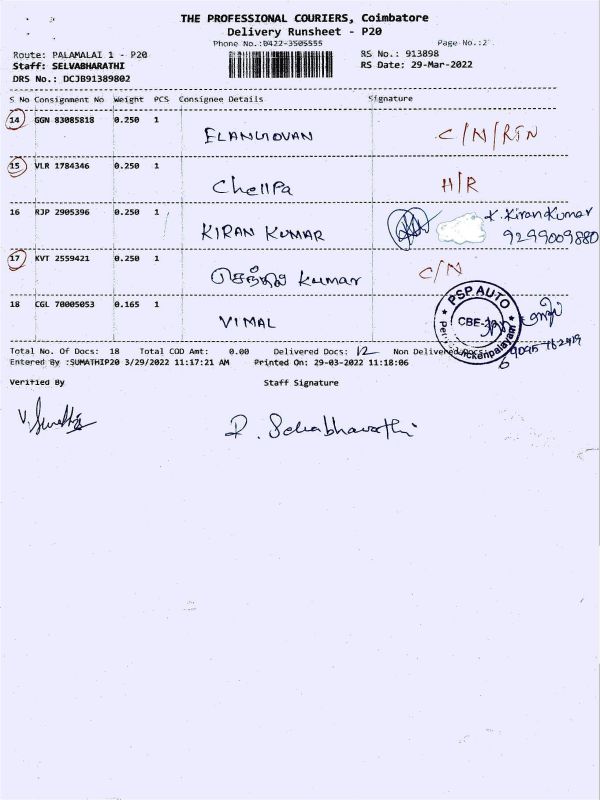 THE PROFESSIONAL COURIERS, Coimbatore
Delivery Runsheet - P20
Phone No.:0422-3505555 Page No.:2
Route: PALAMALAI 1 - P20 RS No.: 913898
Staff: SELVABHARATHI RS Date: 29-Mar-2022
DRS No.: DCJB91389802
S No Consignment No Weight PCS Consignee Details Signature
14 GGN 83085818 0.250 1 ELANGOVAN C/N/RTN
15 VLR 1784346 0.250 1 Chellpa H/R
16 RJP 2905396 0.250 1 KIRAN KUMAR K. Kiran Kumar
9299009880
17 KVT 2559421 0.250 1 kumar C/N
18 CGL 70005053 0.165 1 VIMAL PSP AUTO CBE-
Total No. Of Docs: 18 Total COD Amt: 0.00 Delivered Docs: 12 Non Delivered Docs: 6
Entered By :SUMATHIP20 3/29/2022 11:17:21 AM Printed On: 29-03-2022 11:18:06
Verified By Staff Signature